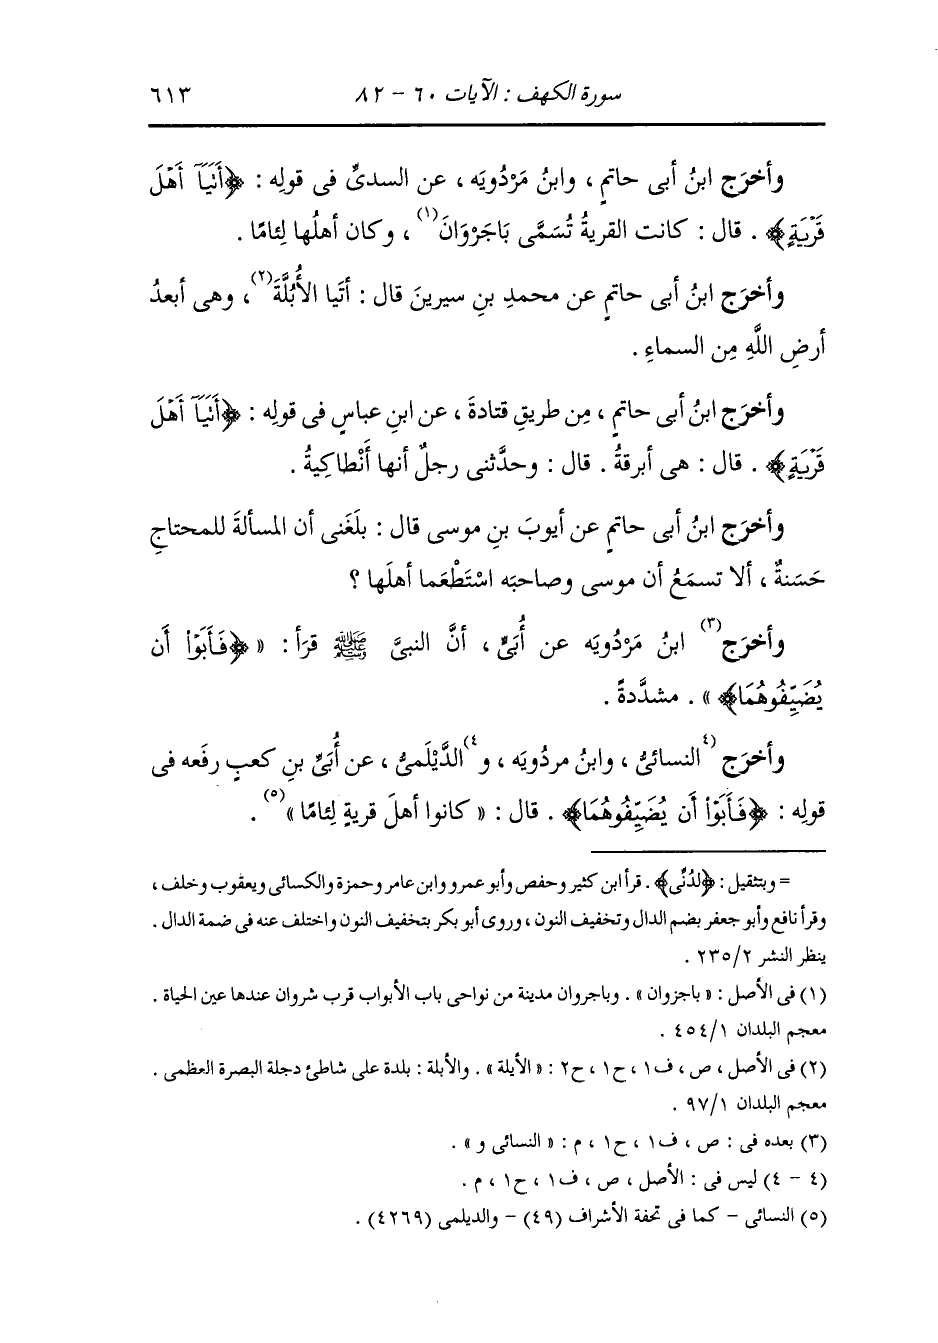 سورة الكهف : الآيات ٦٠ - ٨٢ ٦١٣
وأخرَج ابنُ أبى حاتمٍ ، وابنُ مَرْدُويَه ، عن السدىِّ فى قولِه : ﴿أَنَيَآ أَهْلَ
قَرْيَةٍ﴾ . قال : كانت القريةُ تُسَمَّى بَاجَرْوَانَ(١) ، وكان أهلُها لِئامًا .
وأخرَج ابنُ أبى حاتمٍ عن محمدِ بنِ سيرينَ قال : أتَيا الأُبُلَّةَ(٢) ، وهى أبعدُ
أرضِ اللَّهِ مِن السماءِ .
وأخرَج ابنُ أبى حاتمٍ ، مِن طريقِ قتادةَ ، عن ابنِ عباسٍ فى قولِه : ﴿أَنَيَآ أَهْلَ
قَرْيَةٍ﴾ . قال : هى أبرقةُ . قال : وحدَّثنى رجلٌ أنها أَنْطاكيةُ .
وأخرَج ابنُ أبى حاتمٍ عن أيوبَ بنِ موسى قال : بلَغَنى أن المسألةَ للمحتاجِ
حَسَنةٌ ، ألا تسمَعُ أن موسى وصاحبَه اسْتَطْعَما أهلَها ؟
وأخرَج(٣) ابنُ مَرْدُويَه عن أُبَىٍّ ، أنَّ النبىَّ ﷺ قرَأ : « ﴿فَأَبَوْا أَن
يُضَيِّفُوهُمَا﴾ » . مشدَّدةً .
وأخرَج (٤النسائىُّ ، وابنُ مردُويَه ، و٤)الدَّيْلَمىُّ ، عن أُبَىِّ بنِ كعبٍ رفَعه فى
قولِه : ﴿فَأَبَوْا أَن يُضَيِّفُوهُمَا﴾ . قال : « كانوا أهلَ قريةٍ لِئامًا »(٥) .
= وبتثقيل : ﴿لدُنِّى﴾ . قرأ ابن كثير وحفص وأبو عمرو وابن عامر وحمزة والكسائى ويعقوب وخلف ،
وقرأ نافع وأبو جعفر بضم الدال وتخفيف النون ، وروى أبو بكر بتخفيف النون واختلف عنه فى ضمة الدال .
ينظر النشر ٢/ ٢٣٥ .
(١) فى الأصل : « باجزوان » . وباجروان مدينة من نواحى باب الأبواب قرب شروان عندها عين الحياة .
معجم البلدان ١/ ٤٥٤ .
(٢) فى الأصل ، ص ، ف١ ، ح١ ، ح٢ : « الأيلة » . والأبلة : بلدة على شاطئ دجلة البصرة العظمى .
معجم البلدان ١/ ٩٧ .
(٣) بعده فى : ص ، ف١ ، ح١ ، م : « النسائى و » .
(٤ - ٤) ليس فى : الأصل ، ص ، ف١ ، ح١ ، م .
(٥) النسائى - كما فى تحفة الأشراف (٤٩) - والديلمى (٤٢٦٩) .